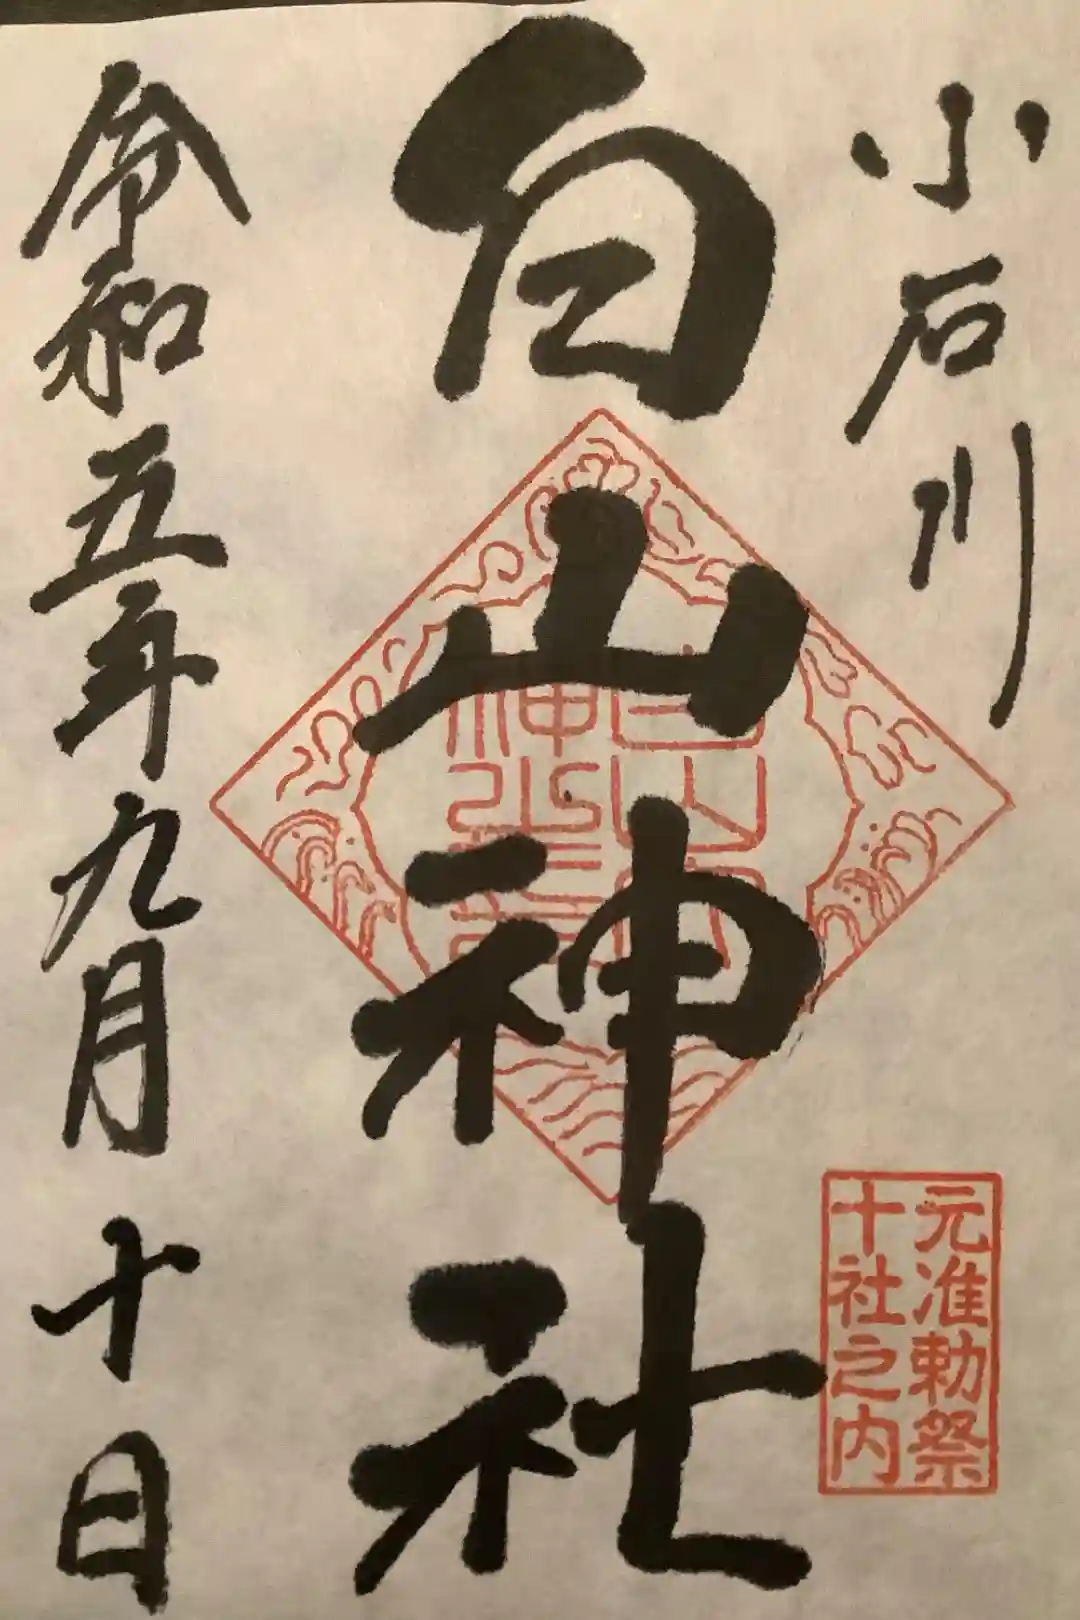 小石川
白山神社
令和五年九月十日
元准勅祭
十社之内